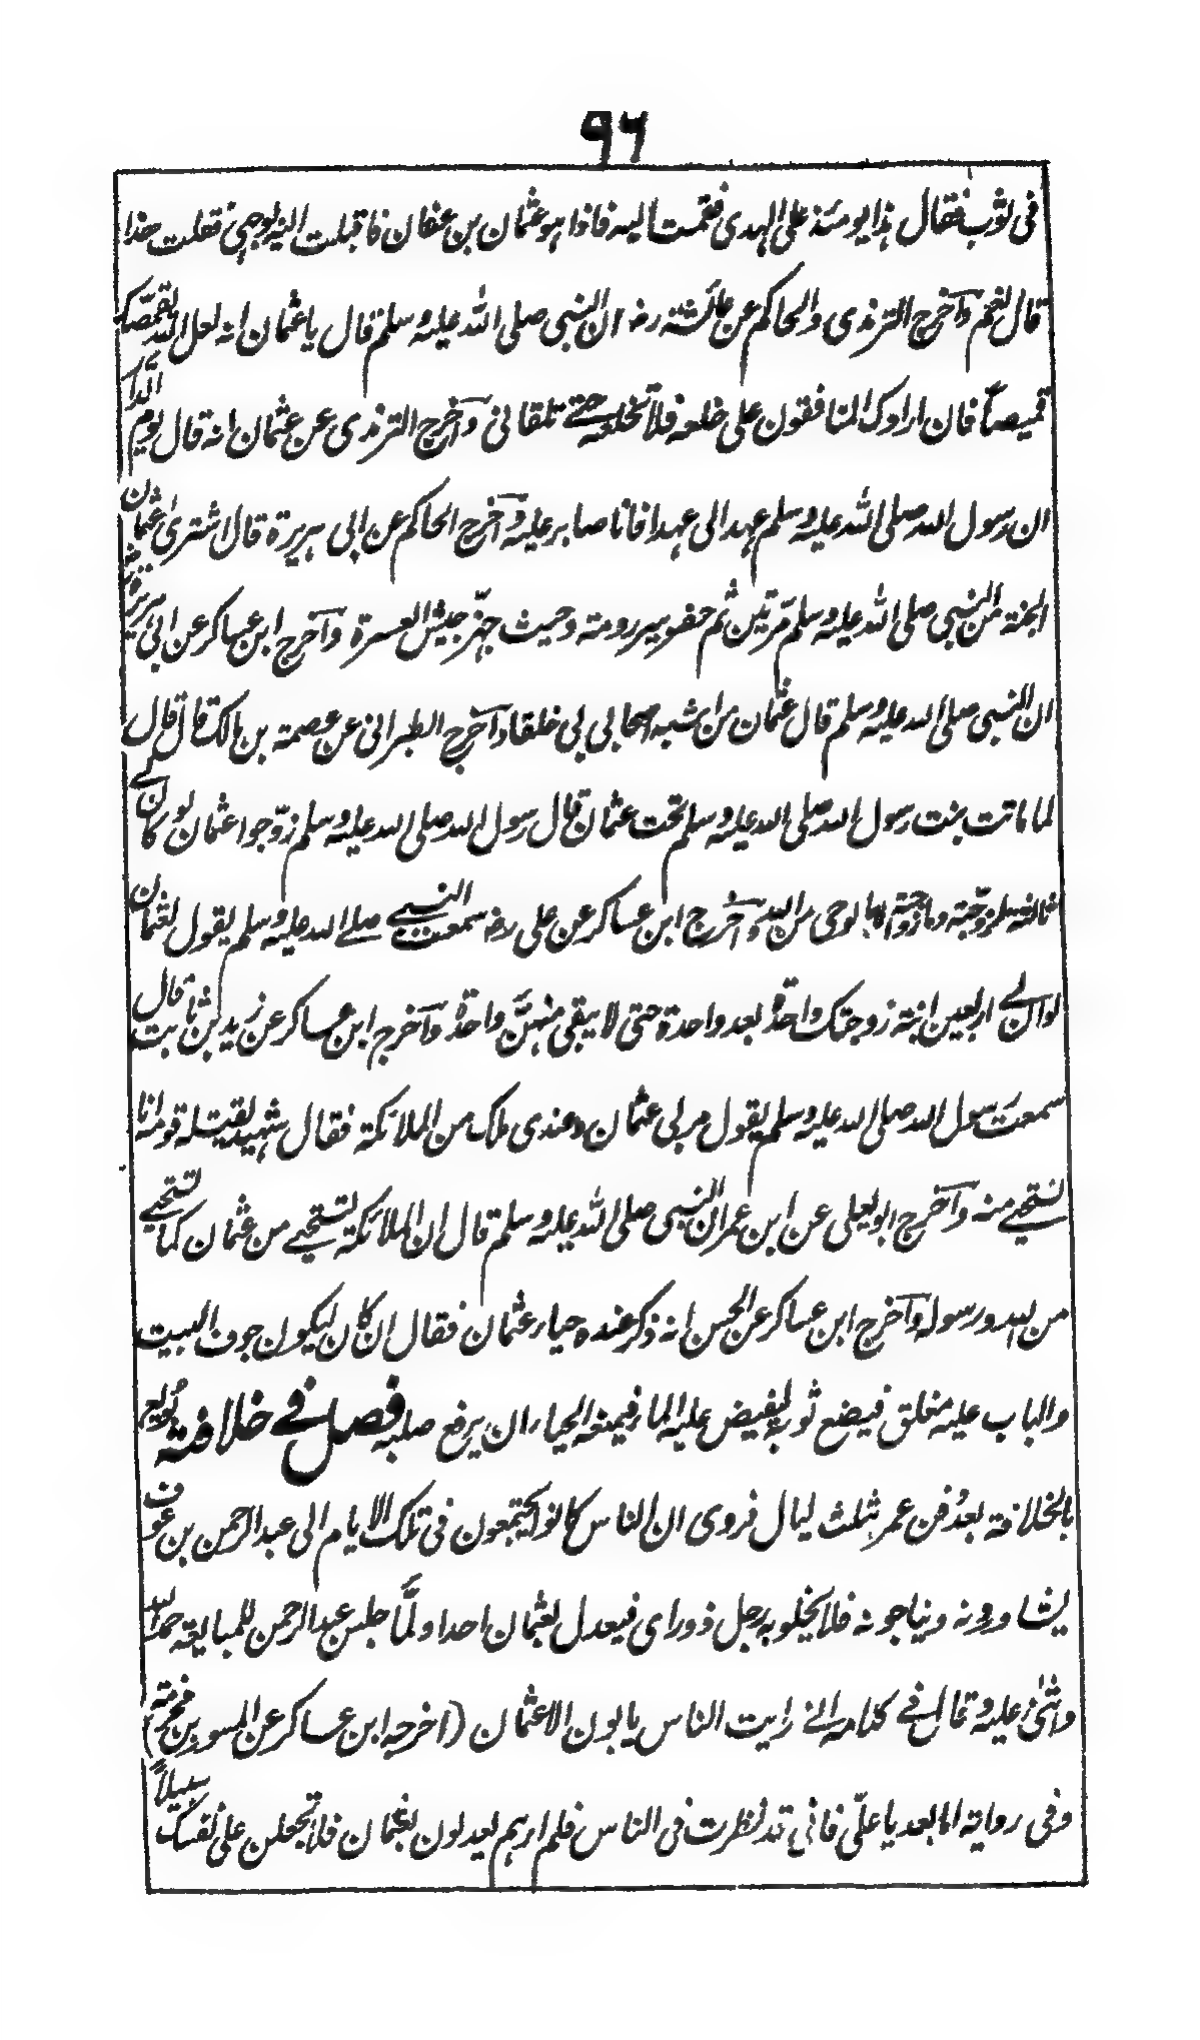 ٩٦
في ثوب فقال هذا يومئذ على الهدى فقمت اليه فاذا هو عثمان بن عفان فاقبلت اليه بوجهي فقلت هذا
قال نعم وآخرج الترمذي والحاكم عن عائشة رض ان النبي صلى الله عليه وسلم قال يا عثمان انه لعل الله يقمصك
قميصاً فان ارادوك المنافقون على خلعه فلا تخلعه حتے تلقاني وآخرج الترمذي عن عثمان انه قال يوم الدار
ان رسول الله صلى الله عليه وسلم عهد الى عهدا فانا صابر عليه وآخرج الحاكم عن ابي هريرة قال اشترى عثمان
الجنة من النبي صلى الله عليه وسلم مرّتين ثم حفر بير رومة وحيث جهّز جيش العسرة وآخرج ابن عساكر عن ابي هريرة
ان النبي صلى الله عليه وسلم قال عثمان من اشبه اصحابي بي خلقا وآخرج الطبراني عن عصمة بن مالك قال قال
لما ماتت بنت رسول الله صلى الله عليه وسلم تحت عثمان قال رسول الله صلى الله عليه وسلم زوّجوا عثمان لو كان لے
ثالثة لزوّجته وما زوّجته الا بالوحي من الله وآخرج ابن عساكر عن على رض سمعت النبے صلے الله عليه وسلم يقول لعثمان
لو ان لے اربعين ابنة زوجتك واحدة بعد واحدة حتى لا يبقى منهنّ واحدة وآخرج ابن عساكر عن زيد بن ثابت قال
سمعت رسول الله صلى الله عليه وسلم يقول مر بي عثمان وعندي ملك من الملائكة فقال شهيد يقتله قومه انا
لنستحيے منه وآخرج ابو يعلى عن ابن عمر ان النبي صلى الله عليه وسلم قال ان الملائكة لتستحيے من عثمان كما تستحيے
من الله ورسوله وآخرج ابن عساكر عن الحسن انه ذكر عنده حياء عثمان فقال ان كان ليكون جوف البيت
والباب عليه مغلق فيضع ثوبه ليفيض عليه الماء فيمنعه الحياء ان يرفع صلبه فصل فے خلافته بويع
بالخلافة بعد دفن عمر بثلث ليال فروى ان الناس كانوا يجتمعون في تلك الايام الى عبد الرحمن بن عوف
يشاورونه ويناجونه فلا يخلو به رجل ذو راى فيعدل بعثمان احدا ولمّا جلس عبد الرحمن للمبايعة حمد الله
واثنى عليه وقال فے كلامه انے رايت الناس يابون الا عثمان (اخرجه ابن عساكر عن المسور بن مخرمة)
وفي رواية اما بعد يا علىّ فاني قد نظرت في الناس فلم ارهم يعدلون بعثمان فلا تجعلن على نفسك سبيلاً